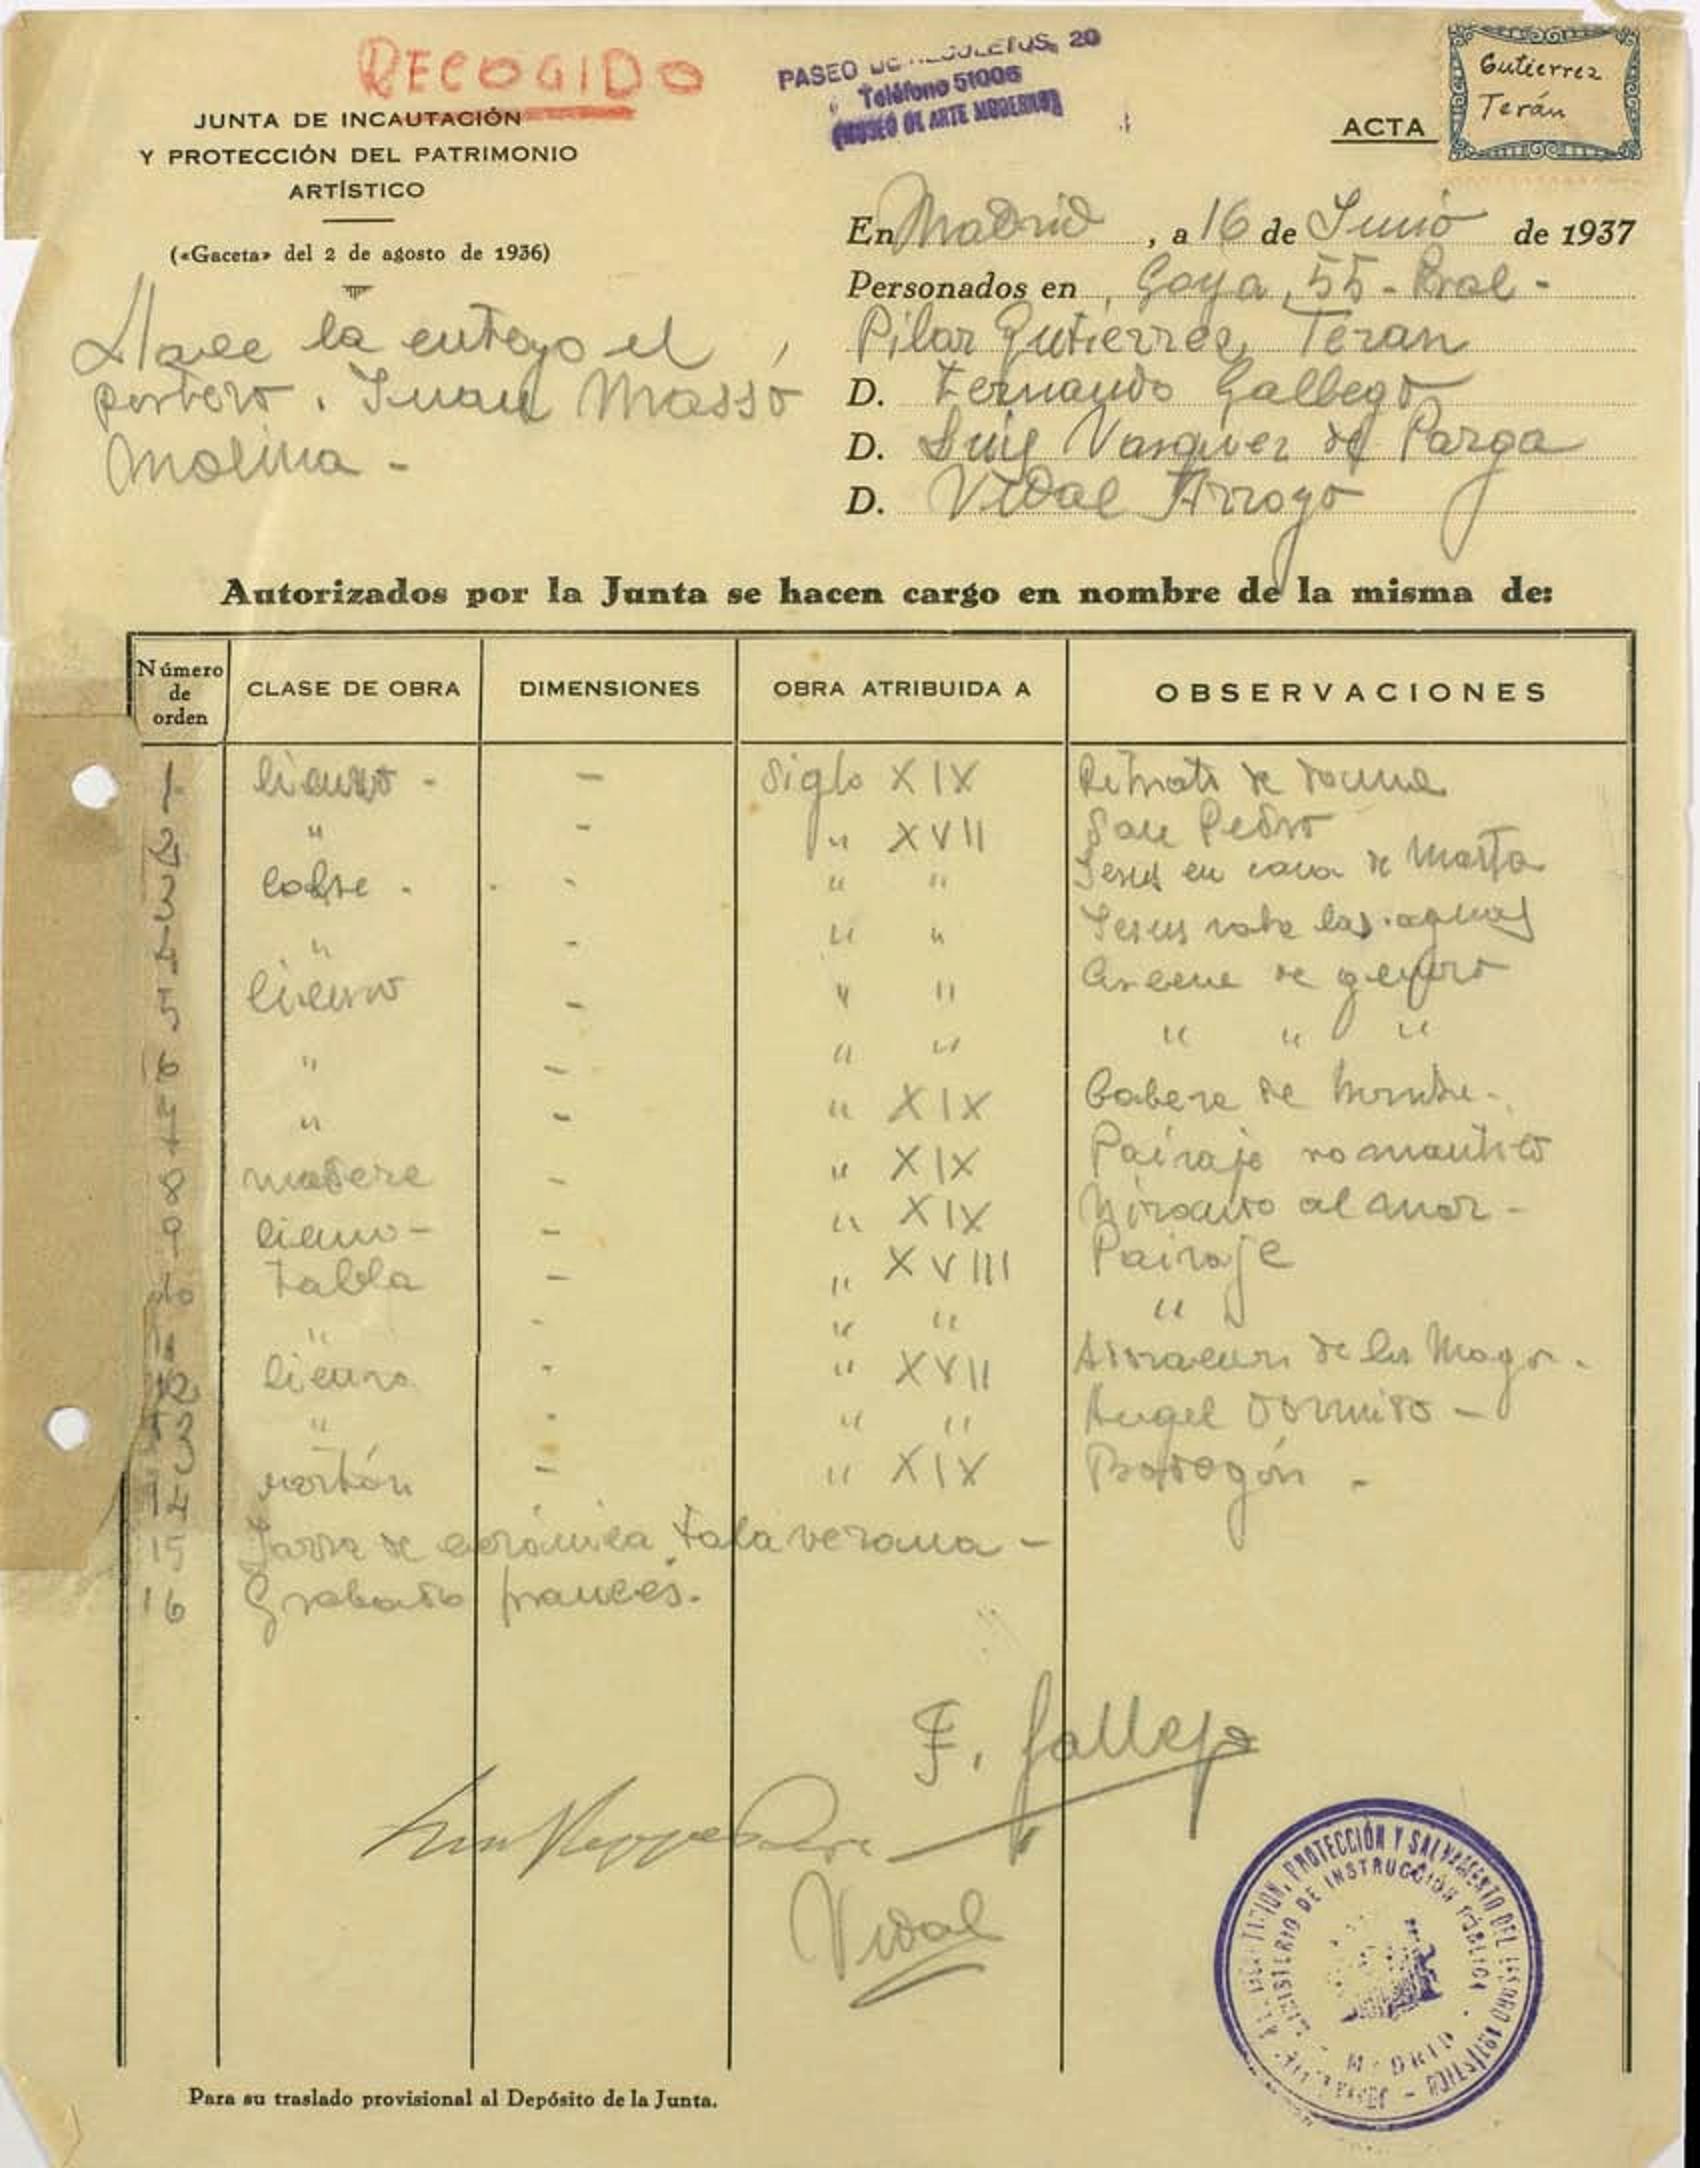 RECOGIDO
PASEO DE RECOLETOS, 20
Teléfono 51006
(MUSEO DE ARTE MODERNO)
JUNTA DE INCAUTACIÓN
Y PROTECCIÓN DEL PATRIMONIO
ARTÍSTICO
(«Gaceta» del 2 de agosto de 1936)
ACTA
Gutierrez
Terán
En Madrid, a 16 de Junio de 1937
Personados en, Goya, 55 - Pral -
Pilar Gutiérrez Teran
D. Fernando Gallego
D. Luis Vazquez de Parga
D. Vidal Arroyo
Hace la entrega el
portero. Juan Massó
Molina -
Autorizados por la Junta se hacen cargo en nombre de la misma de:
Número de orden CLASE DE OBRA DIMENSIONES OBRA ATRIBUIDA A OBSERVACIONES
1 lienzo - - Siglo XIX Retrato de dama
2 " - " XVII San Pedro
3 cobre - - " " Jesus en casa de Marta
4 " - " " Jesus sobre las aguas
5 lienzo - " " Escena de genero
6 " - " " " " "
7 " - " XIX Cabeza de hombre -
8 madera - " XIX Paisaje romantico
9 lienzo - - " XIX Mirando al mar -
10 tabla - " XVIII Paisaje
11 " - " " "
12 lienzo - " XVII Adoracion de los Magos -
13 " - " " Angel dormido -
14 cartón - " XIX Borregón -
15 Jarra de cerámica talaverana -
16 Grabado francés.
F. Gallego
Luis Vazquez de Parga
Vidal
JUNTA DE INCAUTACION, PROTECCIÓN Y SALVAMENTO DEL TESORO ARTÍSTICO
MINISTERIO DE INSTRUCCIÓN PÚBLICA
MADRID
Para su traslado provisional al Depósito de la Junta.